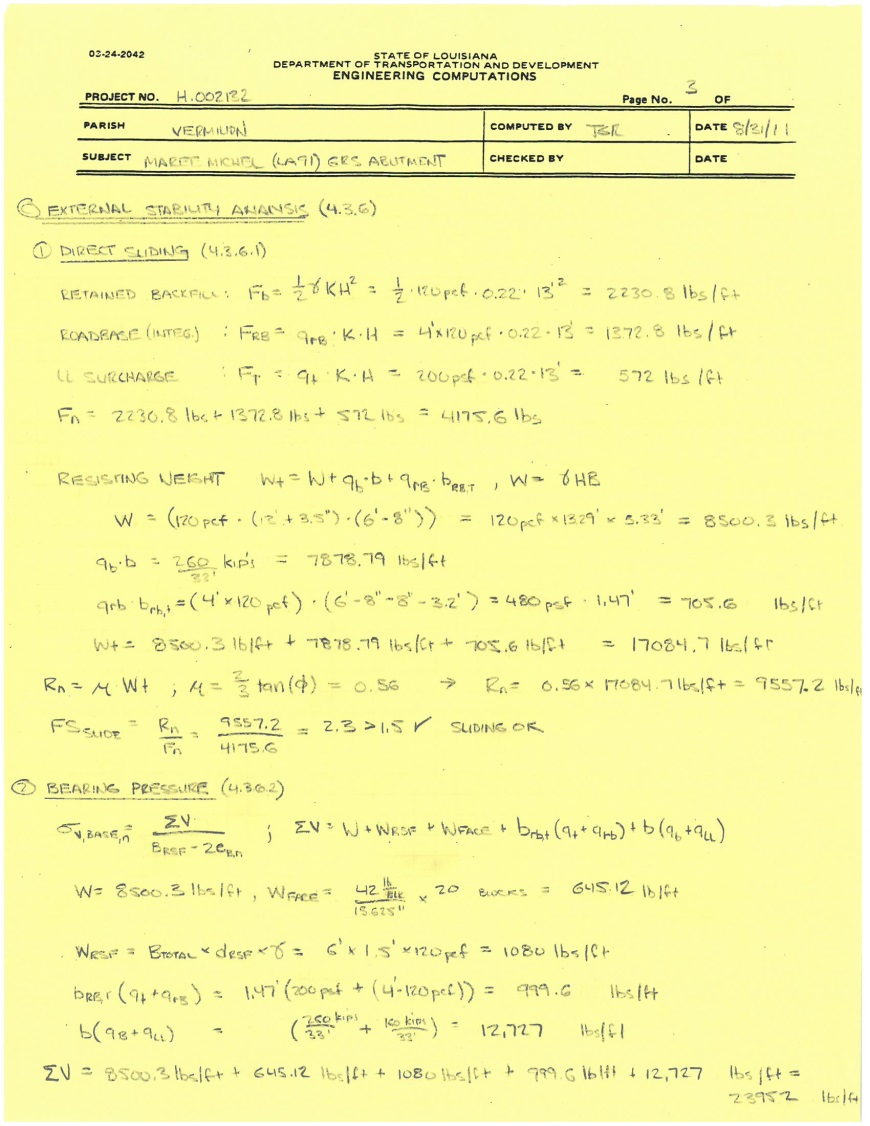 03-24-2042
STATE OF LOUISIANA
DEPARTMENT OF TRANSPORTATION AND DEVELOPMENT
ENGINEERING COMPUTATIONS
PROJECT NO. H.002132 Page No. 3 OF
PARISH VERMILION COMPUTED BY TSR DATE 8/31/11
SUBJECT MAREE MICHEL (LA91) GRS ABUTMENT CHECKED BY DATE
Ⓒ EXTERNAL STABILITY ANALYSIS (4.3.6)
① DIRECT SLIDING (4.3.6.1)
RETAINED BACKFILL: Fb = 1/2 γKH² = 1/2 · 120 pcf · 0.22 · 13'² = 2230.8 lbs/ft
ROADBASE (INTEG.) : FRB = qrB · K · H = 4'×120 pcf · 0.22 · 13' = 1372.8 lbs/ft
LL SURCHARGE : FT = qt · K · H = 200 psf · 0.22 · 13' = 572 lbs/ft
Fn = 2230.8 lbs + 1372.8 lbs + 572 lbs = 4175.6 lbs
RESISTING WEIGHT Wt = W + qb·b + qrB · bRB,T , W = γHB
W = (120 pcf · (13' + 3.5") · (6'-8")) = 120 pcf × 13.29' × 5.33' = 8500.3 lbs/ft
qb·b = 260/33' kips = 7878.79 lbs/ft
qrb·brb,t = (4'×120 pcf) · (6'-8"-8"-3.2') = 480 psf · 1.47' = 705.6 lbs/ft
Wt = 8500.3 lb/ft + 7878.79 lbs/ft + 705.6 lb/ft = 17084.7 lbs/ft
Rn = μ Wt ; μ = 2/3 tan(φ) = 0.56 → Rn = 0.56 × 17084.7 lbs/ft = 9557.2 lbs/ft
FS SLIDE = Rn/Fn = 9557.2/4175.6 = 2.3 > 1.5 ✓ SLIDING OK
② BEARING PRESSURE (4.3.6.2)
σv,BASE,n = ΣV/(BRSF - 2eB,n) ; ΣV = W + WRSF + WFACE + brb,t (qt + qrb) + b(qb + qLL)
W = 8500.3 lbs/ft , WFACE = 42 lb/BLK / 15.625" × 20 BLOCKS = 645.12 lb/ft
WRSF = BTOTAL × dRSF × γ = 6' × 1.5' × 120 pcf = 1080 lbs/ft
bRB,T (qt + qrB) = 1.47' (200 psf + (4'·120 pcf)) = 999.6 lbs/ft
b(qB + qLL) = (260 kips/33' + 160 kips/33') = 12,727 lbs/ft
ΣV = 8500.3 lbs/ft + 645.12 lbs/ft + 1080 lbs/ft + 999.6 lb/ft + 12,727 lbs/ft =
23952 lbs/ft